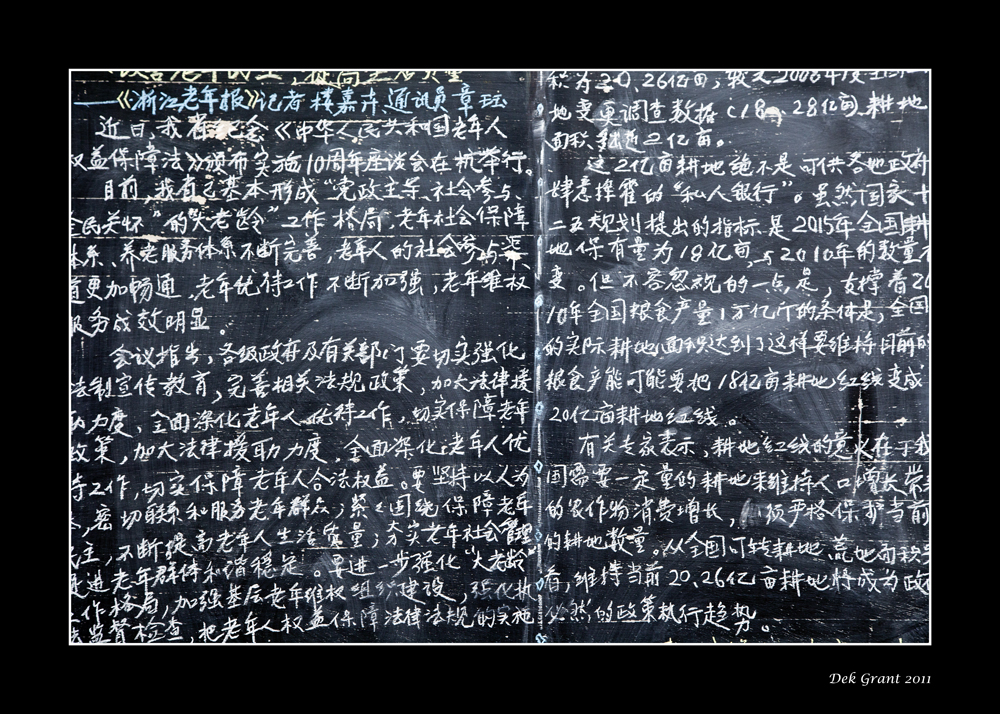 改善老年民生，提高生活质量
——《浙江老年报》记者 楼嘉卉 通讯员 章珏
近日，我省纪念《中华人民共和国老年人
权益保障法》颁布实施10周年座谈会在杭举行。
目前，我省已基本形成“党政主导、社会参与、
全民关怀”的“大老龄”工作格局，老年社会保障
体系、养老服务体系不断完善，老年人的社会参与渠
道更加畅通，老年优待工作不断加强，老年维权
服务成效明显。
会议指出，各级政府及有关部门要切实强化
法制宣传教育，完善相关法规政策，加大法律援
助力度，全面深化老年人优待工作，切实保障老年
政策，加大法律援助力度，全面深化老年人优
待工作，切实保障老年人合法权益。要坚持以人为
本，密切联系和服务老年群众；紧紧围绕保障老年
民主，不断提高老年人生活质量；夯实老年社会管理
促进老年群体和谐稳定。要进一步强化“大老龄”
工作格局，加强基层老年维权组织建设，强化执
法监督检查，把老年人权益保障法律法规的实施
积为20.26亿亩，较之2008年度全国
地变更调查数据（18.28亿亩）耕地
面积多近2亿亩。
这2亿亩耕地绝不是可供各地政府
肆意挥霍的“私人银行”。虽然国家十
二五规划提出的指标是2015年全国耕
地保有量为18亿亩，与2010年的数量不
变。但不容忽视的一点是，支撑着20
10年全国粮食产量1万亿斤的条件是，全国
的实际耕地面积达到了这样要维持目前的
粮食产能可能要把18亿亩耕地红线变成
20亿亩耕地红线。
有关专家表示，耕地红线的意义在于我
国需要一定量的耕地来维持人口增长带来
的农作物消费增长，必须严格保护当前
的耕地数量。从全国可转耕地、荒地面积
看，维持当前20.26亿亩耕地将成为政
必然的政策执行趋势。
Dek Grant 2011